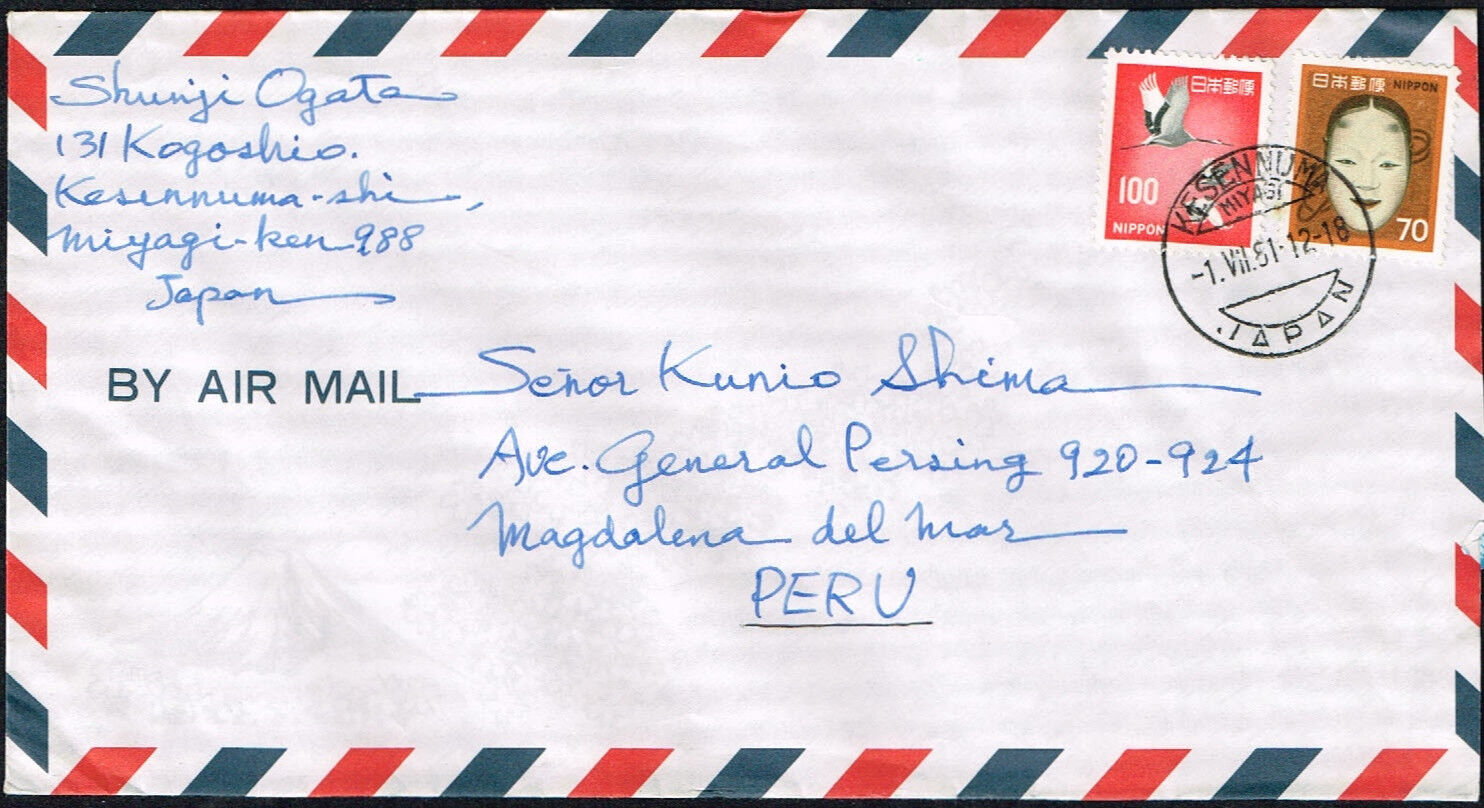 Shunji Ogata
131 Kogoshio.
Kesennuma-shi,
Miyagi-ken 988
Japan
日本郵便
100
NIPPON
日本郵便 NIPPON
70
KESENNUMA
MIYAGI
-1.VII.81.12-18
JAPAN
BY AIR MAIL
Señor Kunio Shima
Ave. General Persing 920-924
Magdalena del Mar
PERU